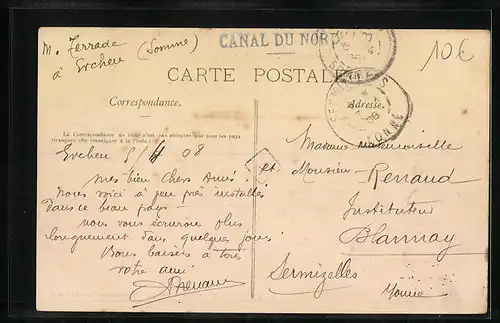 M. Terrade
à Ercheu (Somme)
CANAL DU NORD
10€
CARTE POSTALE
Correspondance.
Adresse.
La Correspondance au recto n'est pas acceptée par tous les pays
étrangers. (Se renseigner à la Poste.)
YONNE
Ercheu 5/4 08
Mes bien Chers Amis
Nous voici à peu près installés
dans ce beau pays -
nous vous écrirons plus
longuement dans quelques jours
Bons baisers à tous
votre ami
Madame Mademoiselle
et Monsieur Renaud
Instituteur
Blannay
Sermizelles
Yonne